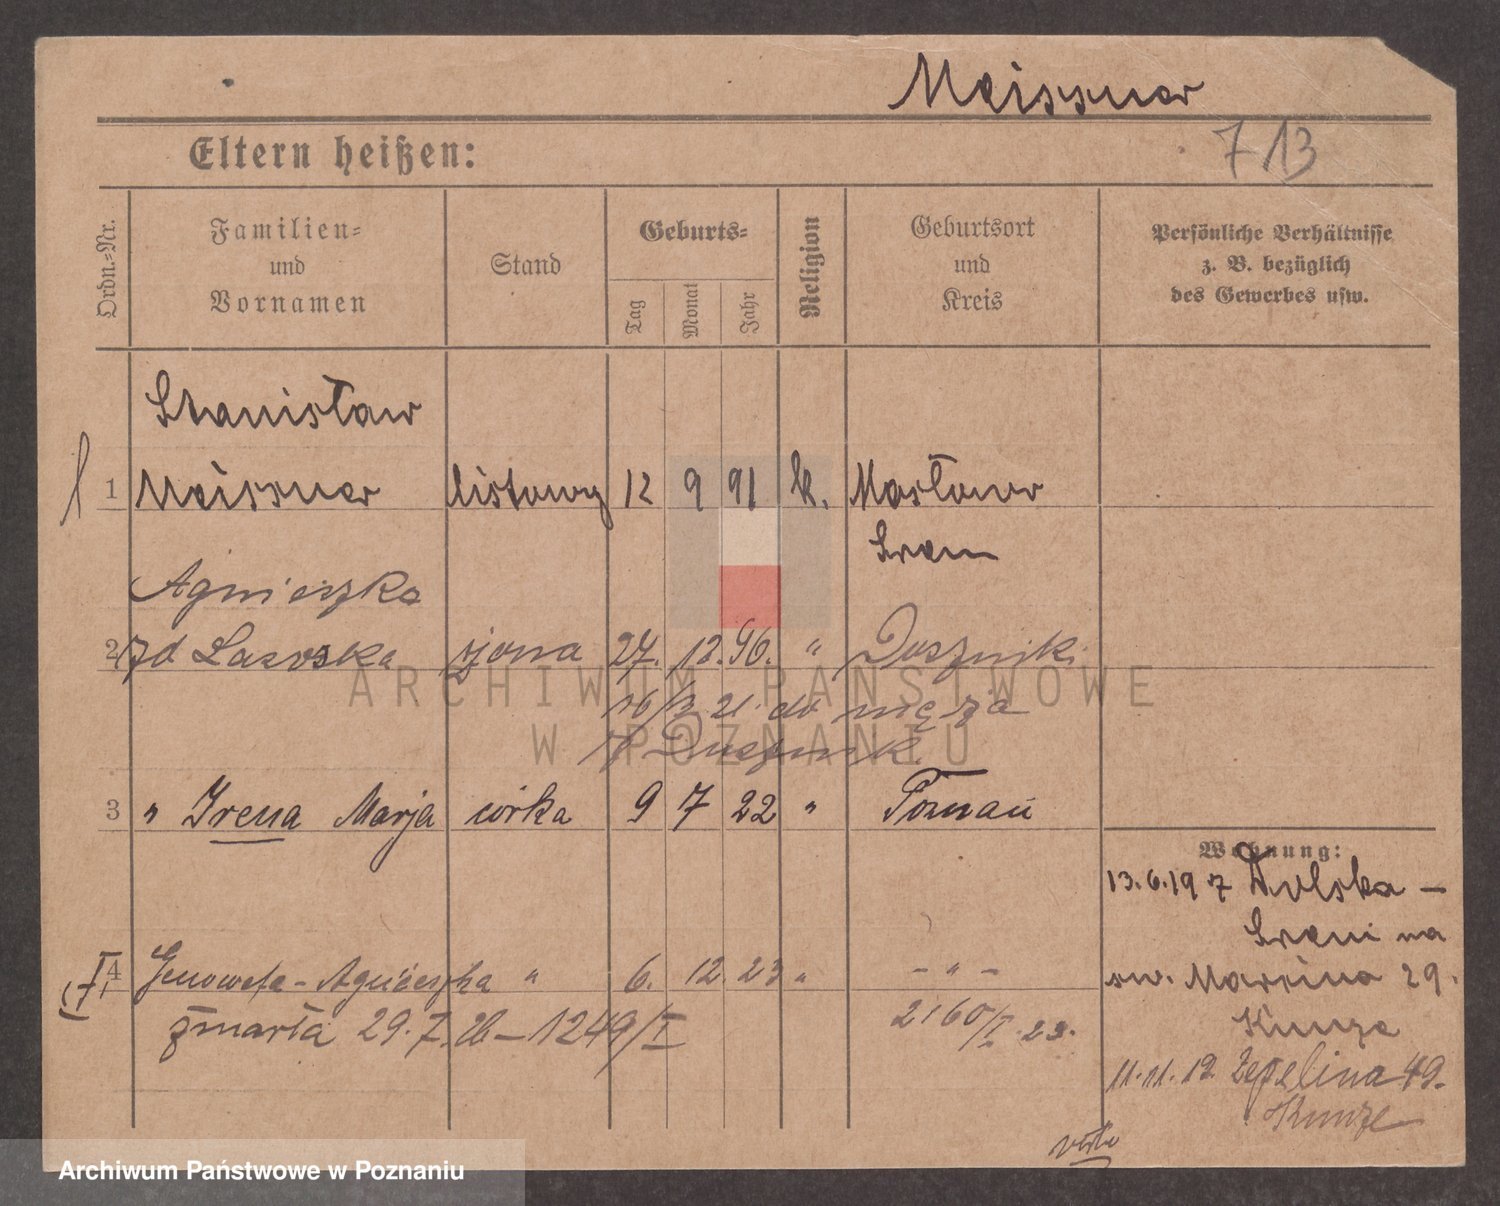 Meissner
713
Eltern heißen:
Ordn.=Nr.
Familien=
und
Vornamen
Stand
Geburts=
Tag
Monat
Jahr
Religion
Geburtsort
und
Kreis
Persönliche Verhältnisse
z. B. bezüglich
des Gewerbes usw.
Stanisław
1 Meissner listowy 12 9 91 k. Masłowo
Srem
Agnieszka
2 zd Laroska żona 27. 12. 96. " Duszniki
16/12.21. do męża
z Dusznik
3 " Irena Marja córka 9 7 22 " Poznań
Wohnung:
13.6.19 z Dolska -
Srem na
sw. Marcina 29.
Kunze
4 Genowefa - Agnieszka " 6. 12. 23 " - " -
zmarła 29.7.26 - 1249/I
2160/I 23.
11.11.19. Zepelina 49.
Kunze
verte
ARCHIWUM PAŃSTWOWE
W POZNANIU
Archiwum Państwowe w Poznaniu